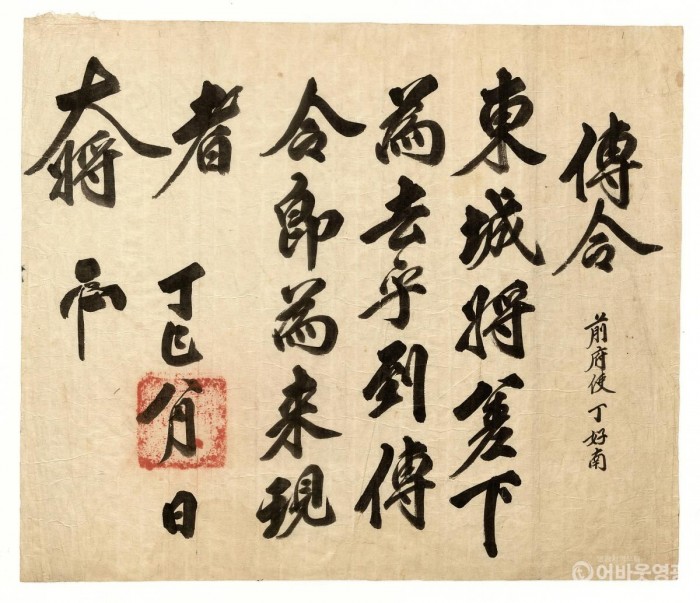 傳令 前府使丁好南
東城將差下
為去乎到傳
令卽為来現
者
丁巳八月 日
大將
어바웃영광